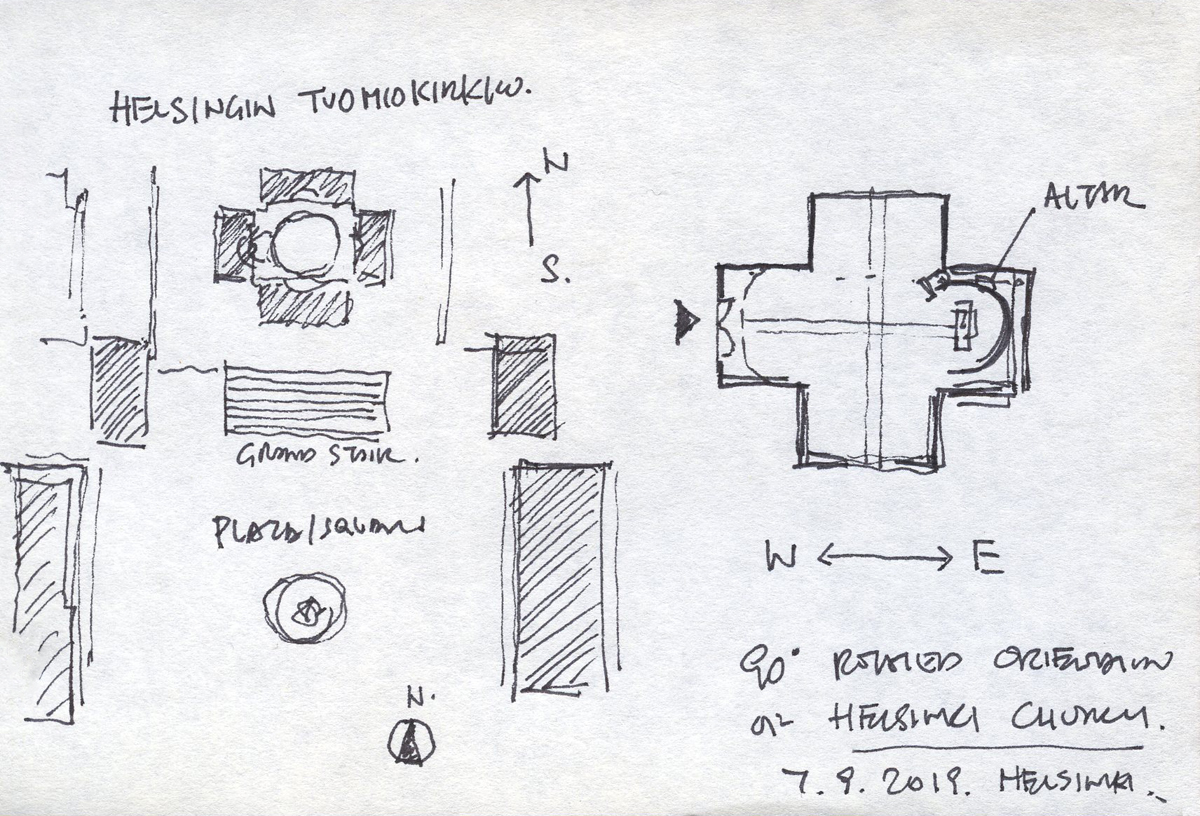 HELSINGIN TUOMIOKIRKKO.
N
S.
ALTAR
GRAND STAIR.
PLAZA/SQUARE
W E
N.
90° ROTATED ORIENTATION
OF HELSINKI CHURCH.
7.9.2019. HELSINKI.